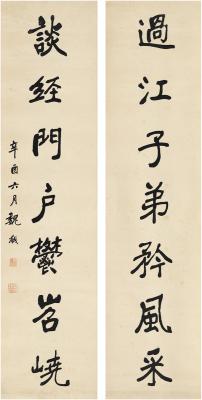 過江子弟矜風采
談經門户鬱岧嶢
辛酉六月魏戫